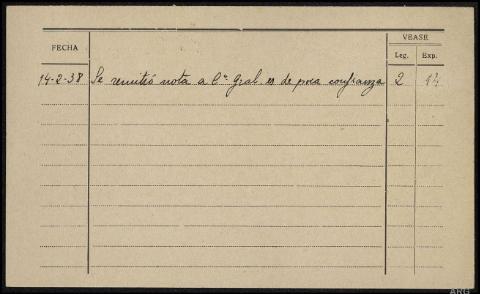 FECHA
VEASE
Leg. Exp.
14-2-38 Se remitió nota a Cª Gral. es de poca confianza 2 94
ARG